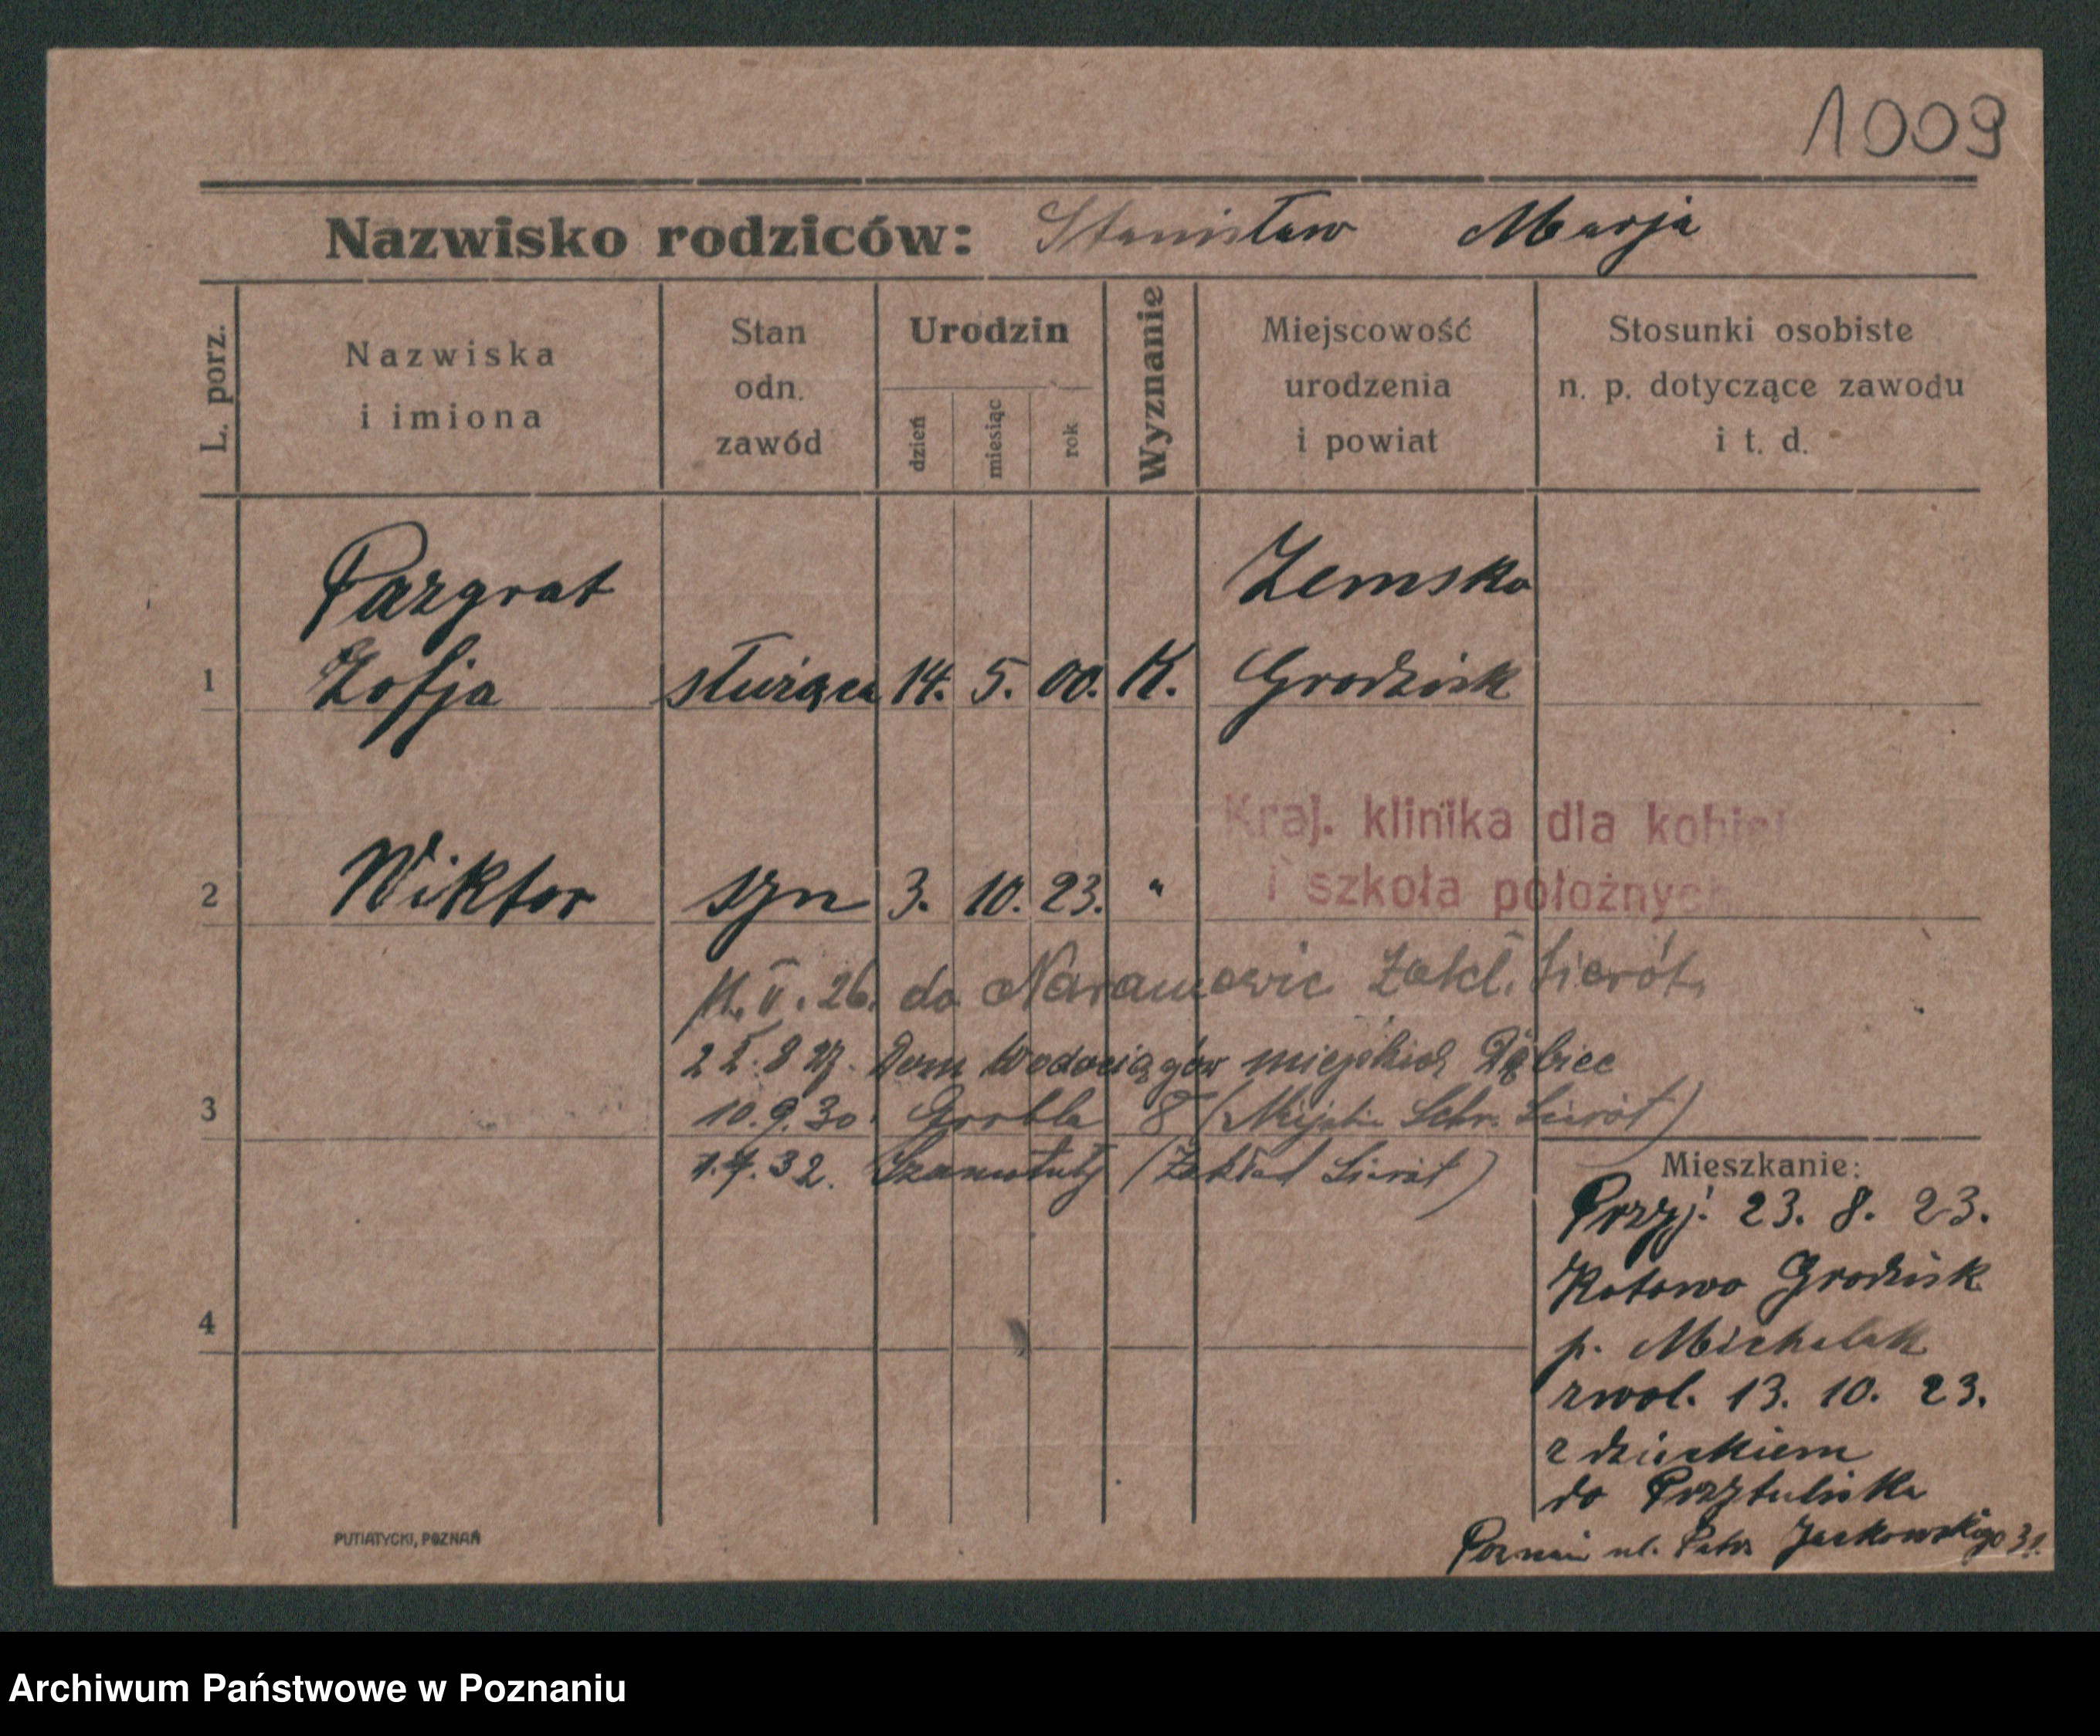 1009
Nazwisko rodziców: Stanisław Marja
L. porz.
Nazwiska
i imiona
Stan
odn.
zawód
Urodzin
dzień
miesiąc
rok
Wyznanie
Miejscowość
urodzenia
i powiat
Stosunki osobiste
n. p. dotyczące zawodu
i t. d.
Pazgrat Zemsko
1 Zofja służąca 14. 5. 00. K. Grodzisk
Kraj. klinika dla kobiet
i szkoła położnych
2 Wiktor syn 3. 10. 23. "
11. V. 26. do Naramowic Zakł. Sierót.
Dom Wodociągów miejskich Dębiec
3
10.9.30. Grobla 8 (Miejskie Schr. Sierót)
1.7.32. Szamotuły (Zakład Sierót)
Mieszkanie:
Przyj. 23. 8. 23.
Kotowo Grodzisk
4
p. Michalak
zwol. 13. 10. 23.
z dzieckiem
do Przytuliska
Poznań ul. Patr. Jackowskiego
PUTIATYCKI, POZNAŃ
Archiwum Państwowe w Poznaniu